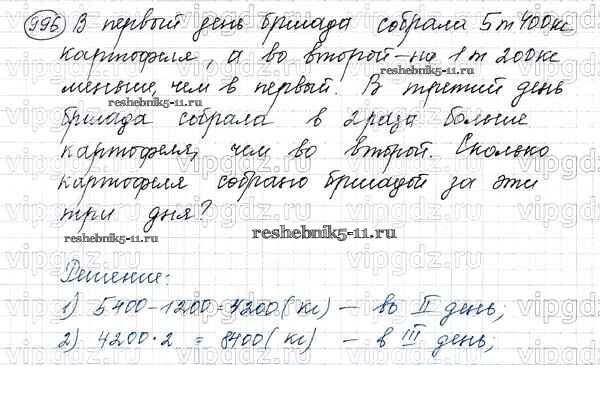 996 В первый день бригада собрала 5 т 400 кг
картофеля, а во второй – на 1 т 200 кг
меньше, чем в первый. В третий день
reshebnik5-11.ru
бригада собрала в 2 раза больше
картофеля, чем во второй. Сколько
картофеля собрано бригадой за эти
три дня?
reshebnik5-11.ru
reshebnik5-11.ru
Решение:
1) 5400-1200=4200 (кг) – во II день;
2) 4200·2 = 8400 (кг) – в III день;
vipgdz.ru